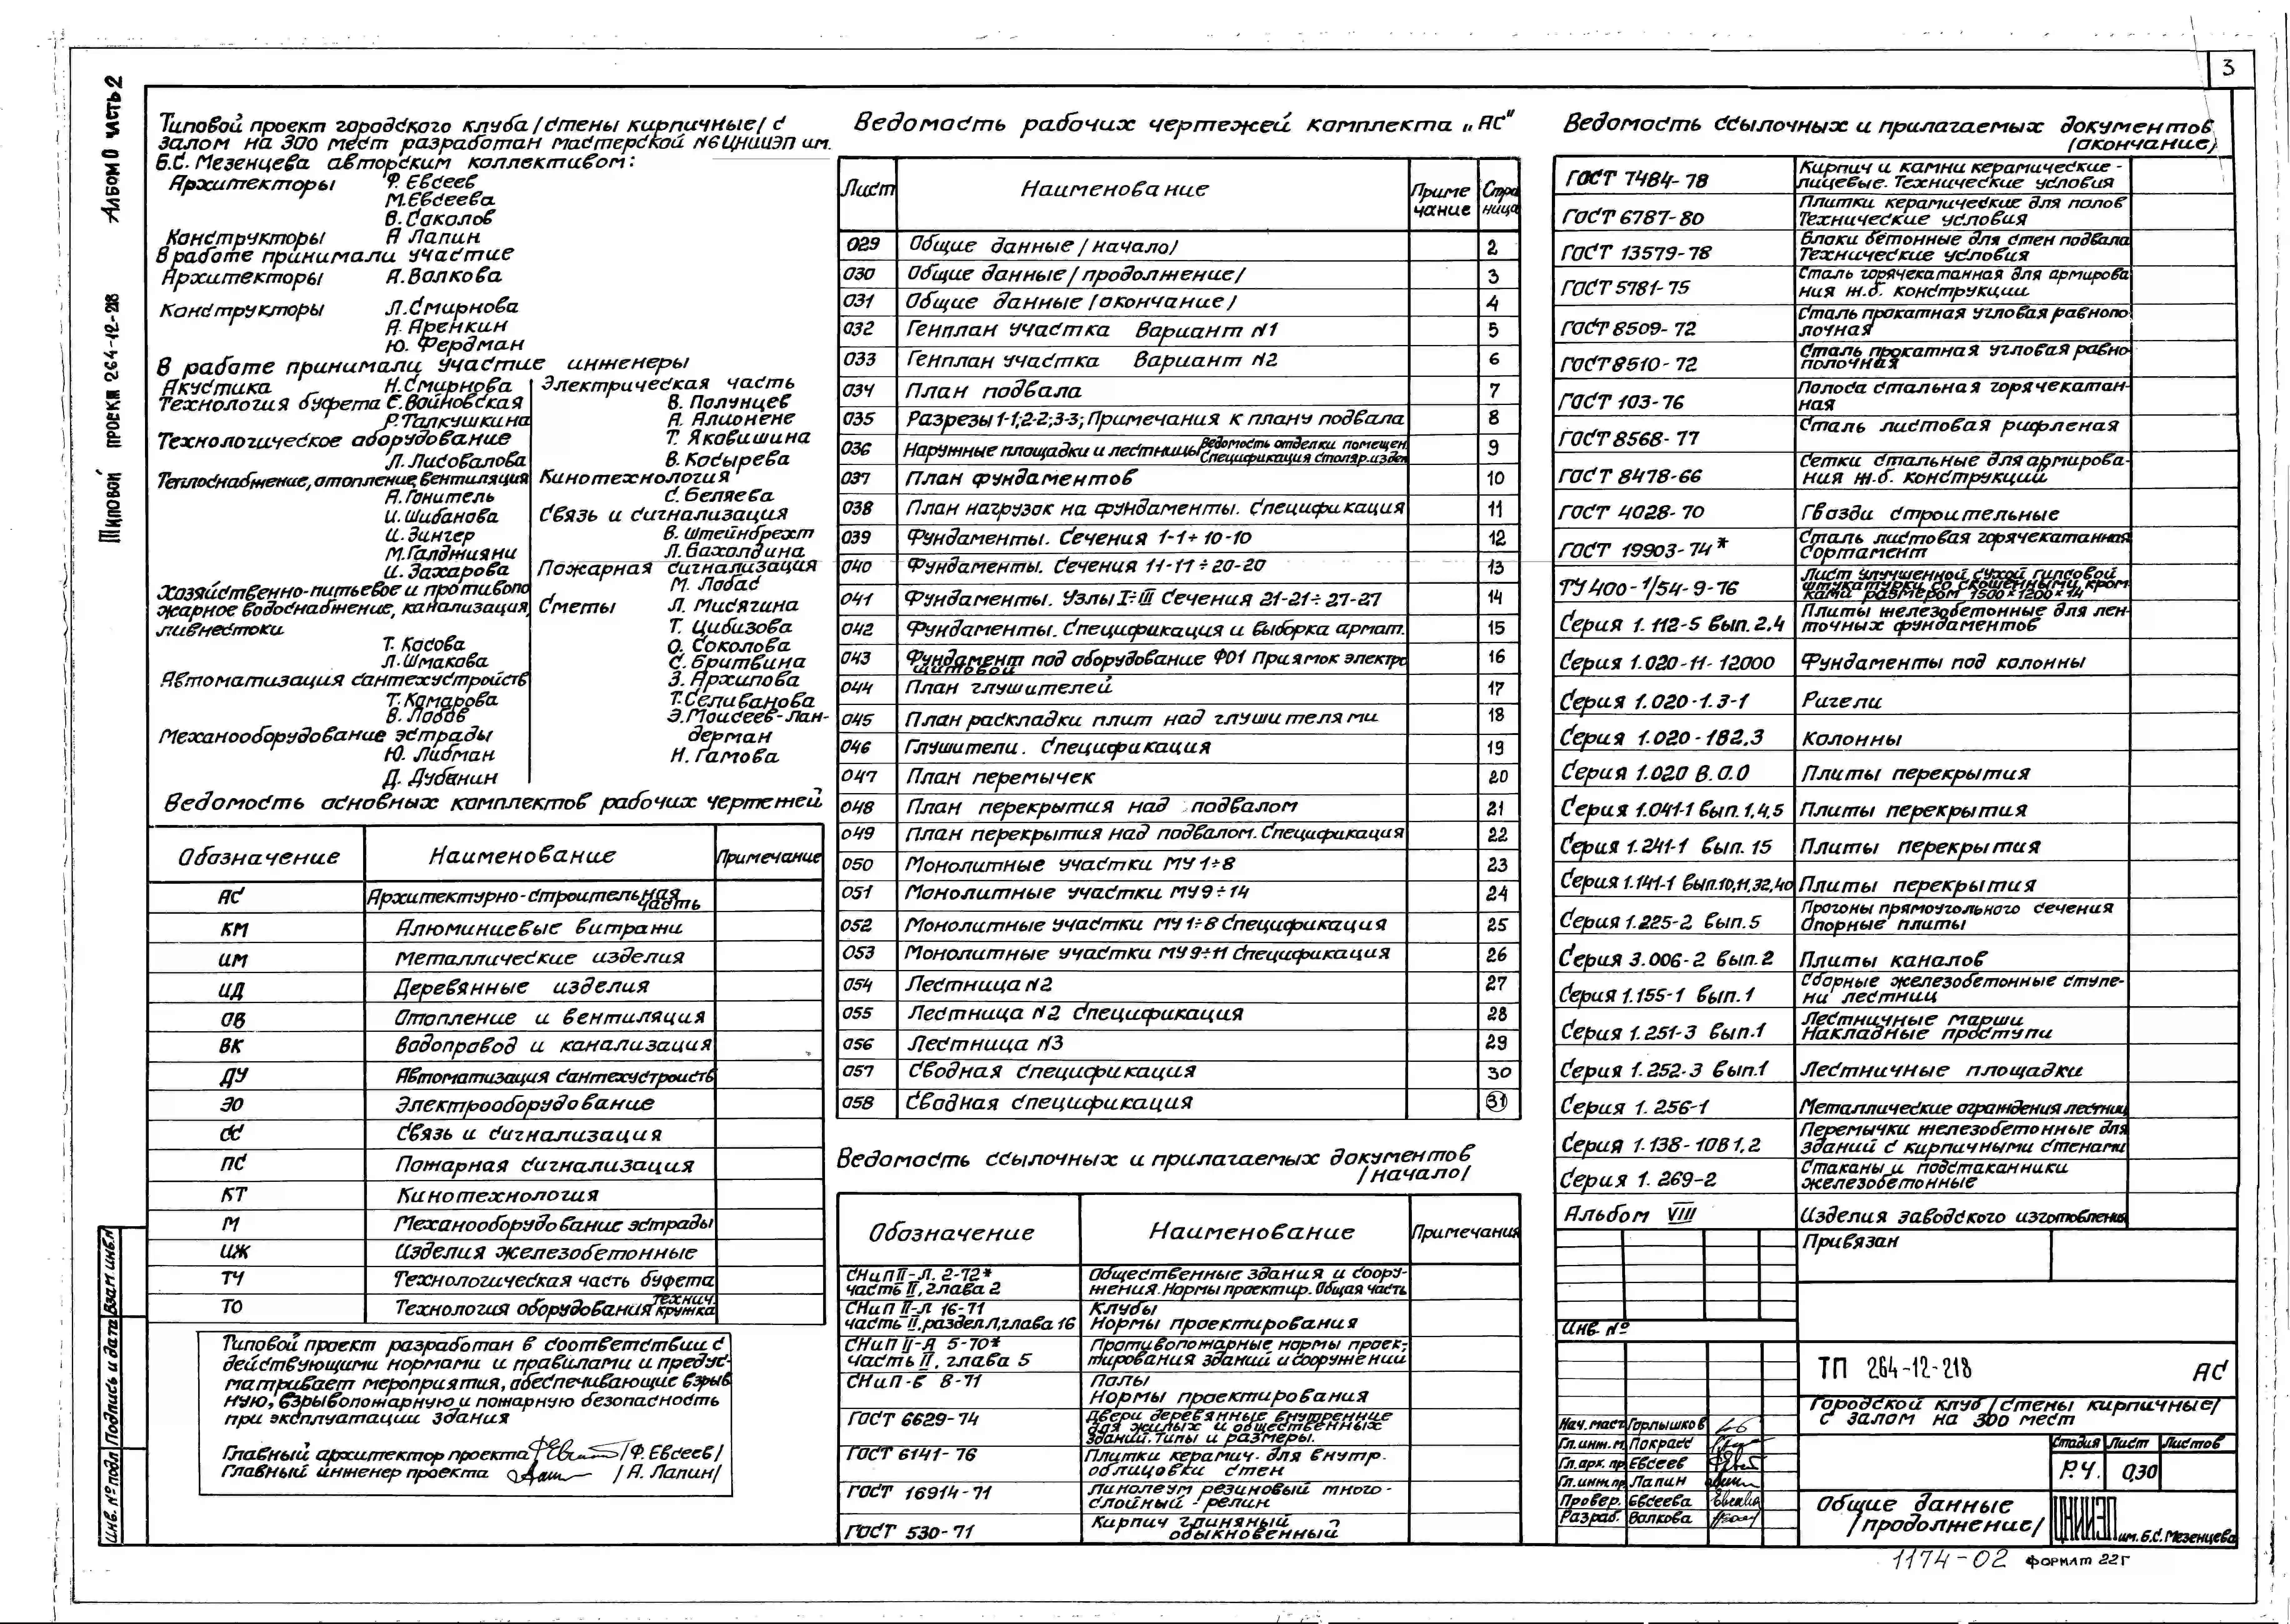 3
Альбом 0 часть 2
Типовой проект 264-12-218
Типовой проект городского клуба /стены кирпичные/ с
залом на 300 мест разработан мастерской №6 ЦНИИЭП им.
Б.С. Мезенцева авторским коллективом:
Архитекторы Ф. Евсеев
М. Евсеева
В. Соколов
Конструкторы А Лапин
В работе принимали участие
Архитекторы А. Волкова
Конструкторы Л. Смирнова
А. Аренкин
Ю. Фердман
В работе принимали участие инженеры
Акустика Н. Смирнова
Технология буфета С. Войновская
Р. Талкушкина
Технологическое оборудование
Л. Лисовалова
Теплоснабжение, отопление, вентиляция
А. Гонитель
И. Шибанова
И. Зингер
М. Галджияни
И. Захарова
Хозяйственно-питьевое и противопо
жарное водоснабжение, канализация,
ливнестоки
Т. Косова
Л. Шмакова
Автоматизация сантехустройств
Т. Комарова
В. Лобов
Механооборудование эстрады
Ю. Либман
Д. Дубанин
Электрическая часть
В. Полунцев
А. Алионене
Т. Яковишина
В. Косырева
Кинотехнология
С. Беляева
Связь и сигнализация
В. Штейнбрехт
Л. Вахолдина
Пожарная сигнализация
М. Лобас
Сметы Л. Мисягина
Т. Цибизова
О. Соколова
С. Бритвина
З. Архипова
Т. Селиванова
Э. Моисеев-Лан-
дерман
Н. Гамова
Ведомость основных комплектов рабочих чертежей
Обозначение Наименование Примечание
АС Архитектурно-строительная часть
КМ Алюминиевые витражи
ИМ Металлические изделия
ИД Деревянные изделия
ОВ Отопление и вентиляция
ВК Водопровод и канализация
ДУ Автоматизация сантехустройств
ЭО Электрооборудование
СС Связь и сигнализация
ПС Пожарная сигнализация
КТ Кинотехнология
М Механооборудование эстрады
ИЖ Изделия железобетонные
ТЧ Технологическая часть буфета
ТО Технология оборудования технич. кружка
Типовой проект разработан в соответствии с
действующими нормами и правилами и предус-
матривает мероприятия, обеспечивающие взрыв
ную, взрывопожарную и пожарную безопасность
при эксплуатации здания
Главный архитектор проекта /Ф. Евсеев/
Главный инженер проекта /А. Лапин/
Взам инв.№
Подпись и дата
Инв. №подл
Ведомость рабочих чертежей комплекта „АС"
Лист Наименование Приме чание Стра ница
029 Общие данные /начало/ 2
030 Общие данные /продолжение/ 3
031 Общие данные /окончание/ 4
032 Генплан участка Вариант №1 5
033 Генплан участка Вариант №2 6
034 План подвала 7
035 Разрезы 1-1; 2-2; 3-3; Примечания к плану подвала 8
036 Наружные площадки и лестницы Ведомость отделки помещен. Спецификация столяр. издел 9
037 План фундаментов 10
038 План нагрузок на фундаменты. Спецификация 11
039 Фундаменты. Сечения 1-1÷10-10 12
040 Фундаменты. Сечения 11-11÷20-20 13
041 Фундаменты. Узлы I÷III Сечения 21-21÷27-27 14
042 Фундаменты. Спецификация и выборка армат. 15
043 Фундамент под оборудование ФО1 Приямок электро щитовой 16
044 План глушителей 17
045 План раскладки плит над глушителями 18
046 Глушители. Спецификация 19
047 План перемычек 20
048 План перекрытия над подвалом 21
049 План перекрытия над подвалом. Спецификация 22
050 Монолитные участки МУ1÷8 23
051 Монолитные участки МУ9÷14 24
052 Монолитные участки МУ1÷8 Спецификация 25
053 Монолитные участки МУ9÷11 Спецификация 26
054 Лестница №2 27
055 Лестница №2 Спецификация 28
056 Лестница №3 29
057 Сводная спецификация 30
058 Сводная спецификация 31
Ведомость ссылочных и прилагаемых документов
/начало/
Обозначение Наименование Примечания
СНиП II-Л. 2-72* Общественные здания и соору-
часть II, глава 2 жения. Нормы проектир. Общая часть
СНиП II-Л 16-71 Клубы
часть II, раздел Л, глава 16 Нормы проектирования
СНиП II-А 5-70* Противопожарные нормы проек-
часть II, глава 5 тирования зданий и сооружений
СНиП-В 8-71 Полы
Нормы проектирования
ГОСТ 6629-74 Двери деревянные внутренние
для жилых и общественных
зданий. Типы и размеры.
ГОСТ 6141-76 Плитки керамич. для внутр.
облицовки стен
ГОСТ 16914-71 Линолеум резиновый много-
слойный - релин
ГОСТ 530-71 Кирпич глиняный
обыкновенный
Ведомость ссылочных и прилагаемых документов
(окончание)
ГОСТ 7484-78 Кирпич и камни керамические -
лицевые. Технические условия
ГОСТ 6787-80 Плитки керамические для полов
Технические условия
ГОСТ 13579-78 Блоки бетонные для стен подвала
Технические условия
ГОСТ 5781-75 Сталь горячекатанная для армирова
ния ж.б. конструкции
ГОСТ 8509-72 Сталь прокатная угловая равнопо
лочная
ГОСТ 8510-72 Сталь прокатная угловая равно-
полочная
ГОСТ 103-76 Полоса стальная горячекатан-
ная
ГОСТ 8568-77 Сталь листовая рифленая
ГОСТ 8478-66 Сетки стальные для армирова-
ния ж.б. конструкций
ГОСТ 4028-70 Гвозди строительные
ГОСТ 19903-74* Сталь листовая горячекатанная
Сортамент
ТУ 400-1/54-9-76 Лист улучшенной сухой гипсовой
штукатурки со скошенными кром
ками размером 1500×1200×14
Серия 1.112-5 вып.2,4 Плиты железобетонные для лен-
точных фундаментов
Серия 1.020-11-12000 Фундаменты под колонны
Серия 1.020-1.3-1 Ригели
Серия 1.020-182.3 Колонны
Серия 1.020 В.0.0 Плиты перекрытия
Серия 1.041-1 вып.1,4,5 Плиты перекрытия
Серия 1.241-1 вып. 15 Плиты перекрытия
Серия 1.141-1 вып.10,11,32,40 Плиты перекрытия
Серия 1.225-2 вып.5 Прогоны прямоугольного сечения
Опорные плиты
Серия 3.006-2 вып.2 Плиты каналов
Серия 1.155-1 вып.1 Сборные железобетонные ступе-
ни лестниц
Серия 1.251-3 вып.1 Лестничные марши
Накладные проступи
Серия 1.252-3 вып.1 Лестничные площадки
Серия 1.256-1 Металлические ограждения лестниц
Серия 1.138-10В1,2 Перемычки железобетонные для
зданий с кирпичными стенами
Серия 1.269-2 Стаканы и подстаканники
железобетонные
Альбом VIII Изделия заводского изготовления
Привязан
Инв №
ТП 264-12-218 АС
Городской клуб /стены кирпичные/
с залом на 300 мест
Нач. маст Горлышков
Гл. инж. м. Покрасс
Гл. арх. пр. Евсеев
Гл. инж. пр. Лапин
Провер. Евсеева
Разраб. Волкова
Стадия Лист Листов
Р.Ч. 0,30
Общие данные
/продолжение/
ЦНИИЭП
им. Б.С. Мезенцева
1174-02 формат 22Г